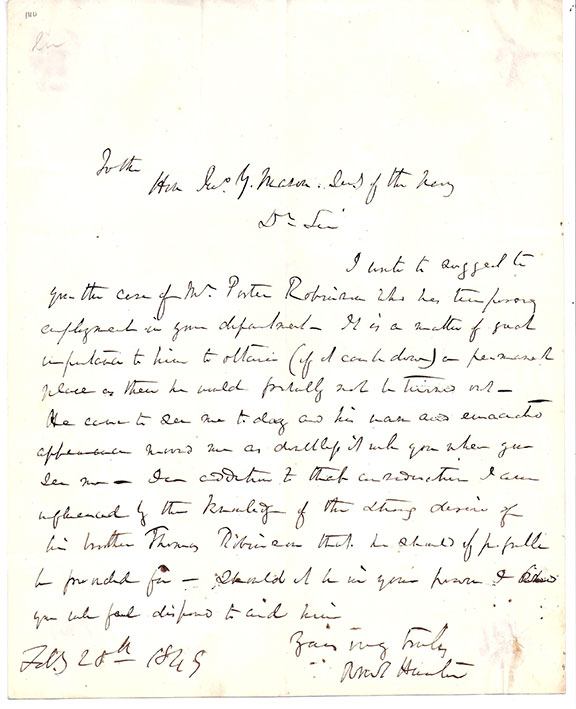 To the
Hon Jno. Y. Mason. Sec'y of the Navy
Dr Sir
I write to suggest to
you the case of Mr. Porter Robinson who has temporary
employment in your department — It is a matter of great
importance to him to obtain (if it can be done) a permanent
place as then he would probably not be turned out —
He came to see me to day and his wan and emaciated
appearance moved me as doubtless it will you when you
see him — In addition to that consideration I am
influenced by the knowledge of the strong desire of
his brother Thomas Robinson that he should if possible
be provided for — Should it be in your power I
you will feel disposed to aid him
Yours very truly
Hunter
Feby 28th 1849